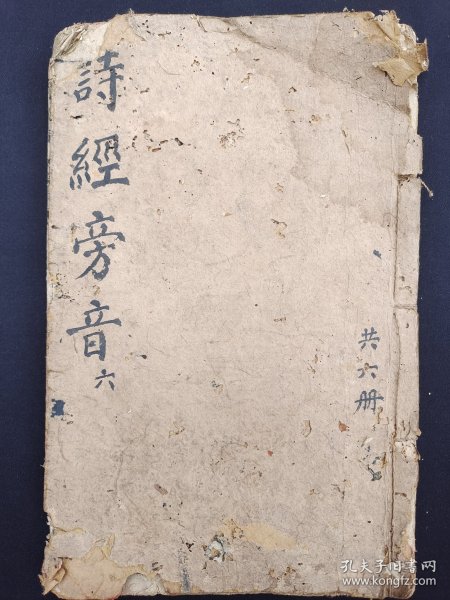 詩經旁音 六
共六册
孔夫子旧书网
www.kongfz.com